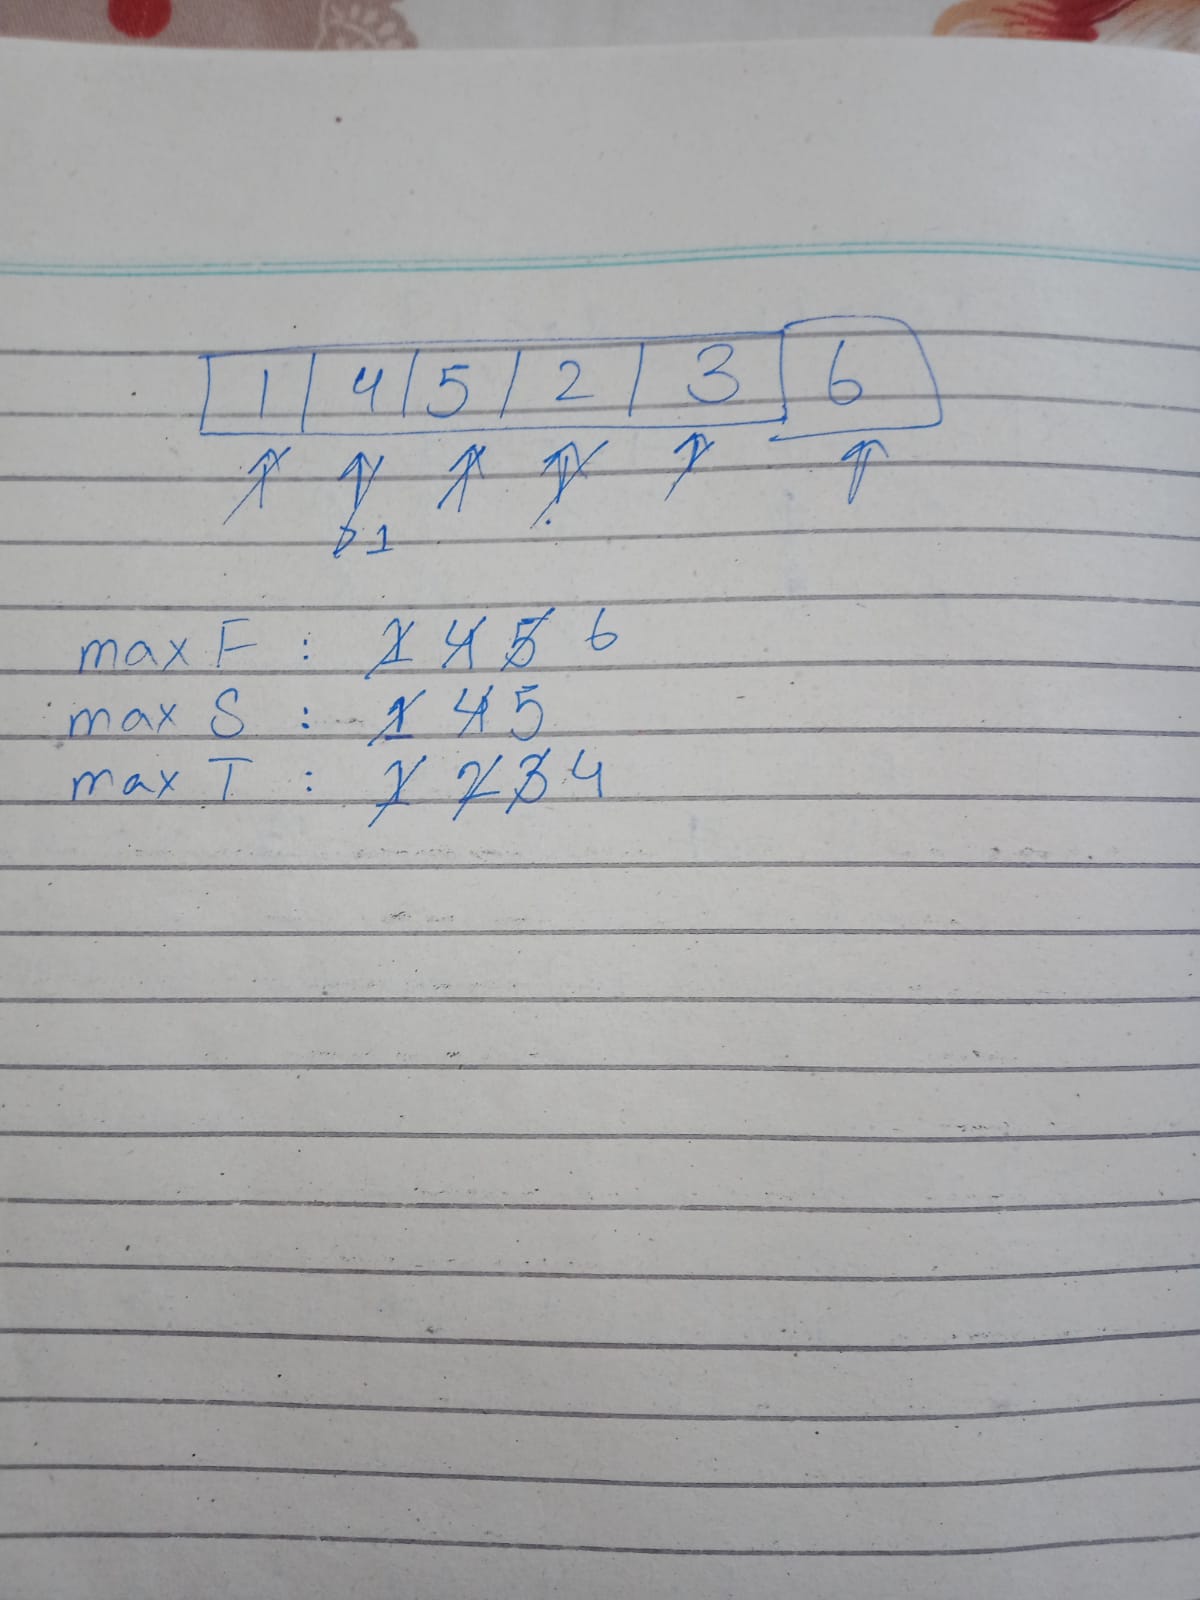 1 4 5 2 3 6
maxF : 1 4 5 6
max S : 1 4 5
max T : 1 2 3 4